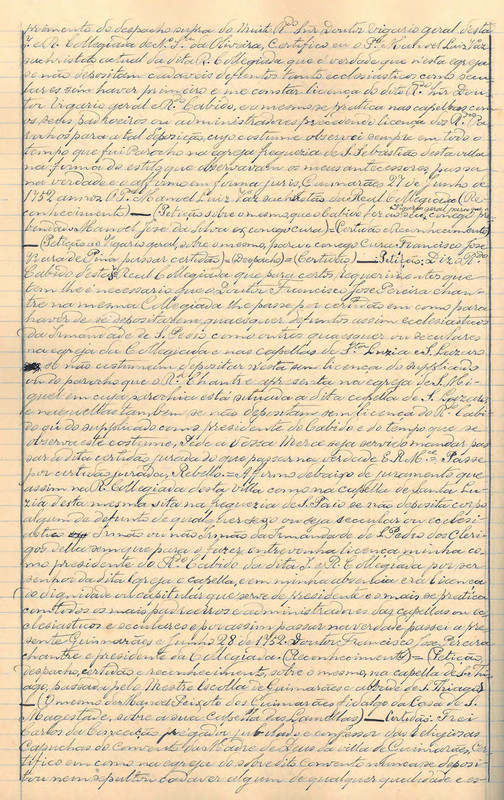 primento do despacho supra do Muito Rdo Snr Doutor vigario geral d'esta
I. e R. Collegiada de N. Sra da Oliveira, Certifico eu o Pe Manoel Luiz Vaz
sachristão actual da dita R. Collegiada que é verdade que n'esta egreja
se não depositam cadaveis defuntos tanto ecclesiasticos como secu-
lares sem haver primeiro e me constar licença do dito Rdo Snr Dou-
tor vigario geral e Rdo Cabido, e o mesmo se pratica nas capellas com
os padroeiros ou administradores precedendo licença dos Rdos
para a tal deposição, cujo costume observei sempre em todo o
tempo que fui Parocho na egreja freguezia de S. Sebastião d'esta villa
na forma do estylo que observavam os meus antecessores, passa
na verdade e o affirmo em forma juris, Guimarães 27 de Junho de
1752 annos. O Pe Manoel Luiz Vaz sachristão da Real Collegiada (Re-
conhecimento) — (Petição sobre o mesmo, que o Cabido fez ao seu conego pre-
bendado Manoel José da Silva ex conego cura) — Certidão e Reconhecimento)
— (Petição ao vigario geral, sobre o mesmo, para o conego Cura Francisco José
de Pina passar certidão) = (Despacho) = (Certidão) — Petição: Diz o Rdo
Cabido d'esta Real Collegiada que para certos requerimentos que
tem lhe é necessario que o Doutor Francisco José Pereira chan-
tre na mesma Collegiada lhe passe por certidão em como para
haver de se depositarem quaesquer defuntos assim ecclesiasticos
da Irmandade de S. Pedro como outros quaesquer ou seculares
na egreja da Collegiada e nas capellas de Sta Luzia e S. Lazaro
se não costumam depositar n'esta sem licença do supplicado
ou do parocho que o Rdo Chantre apresenta na egreja de S. Mi-
guel em cuja parochia está situada a dita capella de S. Lazaro
e n'aquellas tambem se não depositam sem licença do Rdo Cabi-
do ou do supplicado como presidente do Cabido e do tempo que se
observa este costume, Pede a Vossa Mercê seja servido mandar pas-
sar a dita certidão jurada do que passar na verdade E. R. Mce = Passe
por certidão jurada, Rebello = Affirmo debaixo de juramento que
assim na R. Collegiada d'esta villa como na capella de Santa Lu-
zia d'esta mesma sita na freguezia de S. Paio se não deposita corpo
algum de defunto de qualquer sexo ou seja secular ou ecclesi-
astico Irmão ou não Irmão da Irmandade de S. Pedro dos Cleri-
gos d'ella sem que para o fazer entrevenha licença minha co-
mo presidente do Rdo Cabido da dita I. e R. Collegiada por ser
senhor da dita Igreja e capella, e em minha absencia era licença
da dignidade ou capitular que serve de presidente e o mais se pratica
com todos os mais padroeiros e administradores das capellas ou ec-
clesiasticos e seculares e por assim passar na verdade passei a pre-
sente Guimarães e Junho 28 de 1752. Doutor Francisco José Pereira
chantre e presidente da Collegiada. (Reconhecimento) = (Petição,
despacho, certidão e reconhecimento, sobre o mesmo, na capella de S. Thi-
ago, passada pelo Mestre Escolla de Guimarães e abbade de S. Thiago)
— (O mesmo de Manoel Peixoto dos Guimarães fidalgo da Casa de S.
Magestade, sobre a sua Capella das Dominicas) — Certidão: Frei
Carlos da Conceição prégador jubilado e confessor das religiosas
Capuchas do Convento da Madre de Deus da villa de Guimarães, Cer-
tifico em como na egreja do sobredito Convento nunca se deposi-
tou nem sepultou cadaver algum de qualquer qualidade e es-